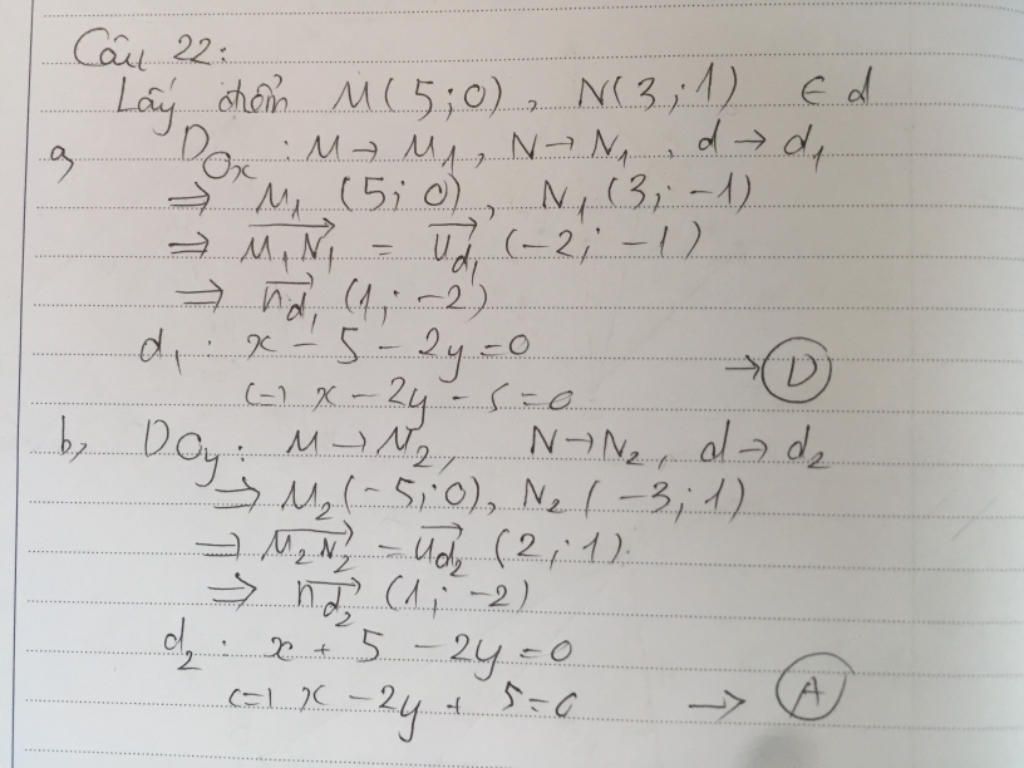 Câu 22:
Lấy điểm M(5;0), N(3;1) ∈ d
a, Đ_Ox : M → M₁, N → N₁, d → d₁
⇒ M₁ (5; 0), N₁ (3; -1)
⇒ \overrightarrow{M₁N₁} = \overrightarrow{u_{d₁}} (-2; -1)
⇒ \overrightarrow{n_{d₁}} (1; -2)
d₁ : x - 5 - 2y = 0
(=) x - 2y - 5 = 0 → D
b, ĐOy : M → M₂, N → N₂, d → d₂
⇒ M₂ (-5;0), N₂ (-3; 1)
⇒ \overrightarrow{M₂N₂} = \overrightarrow{u_{d₂}} (2; 1).
⇒ \overrightarrow{n_{d₂}} (1; -2)
d₂ : x + 5 - 2y = 0
(=) x - 2y + 5 = 0 → A